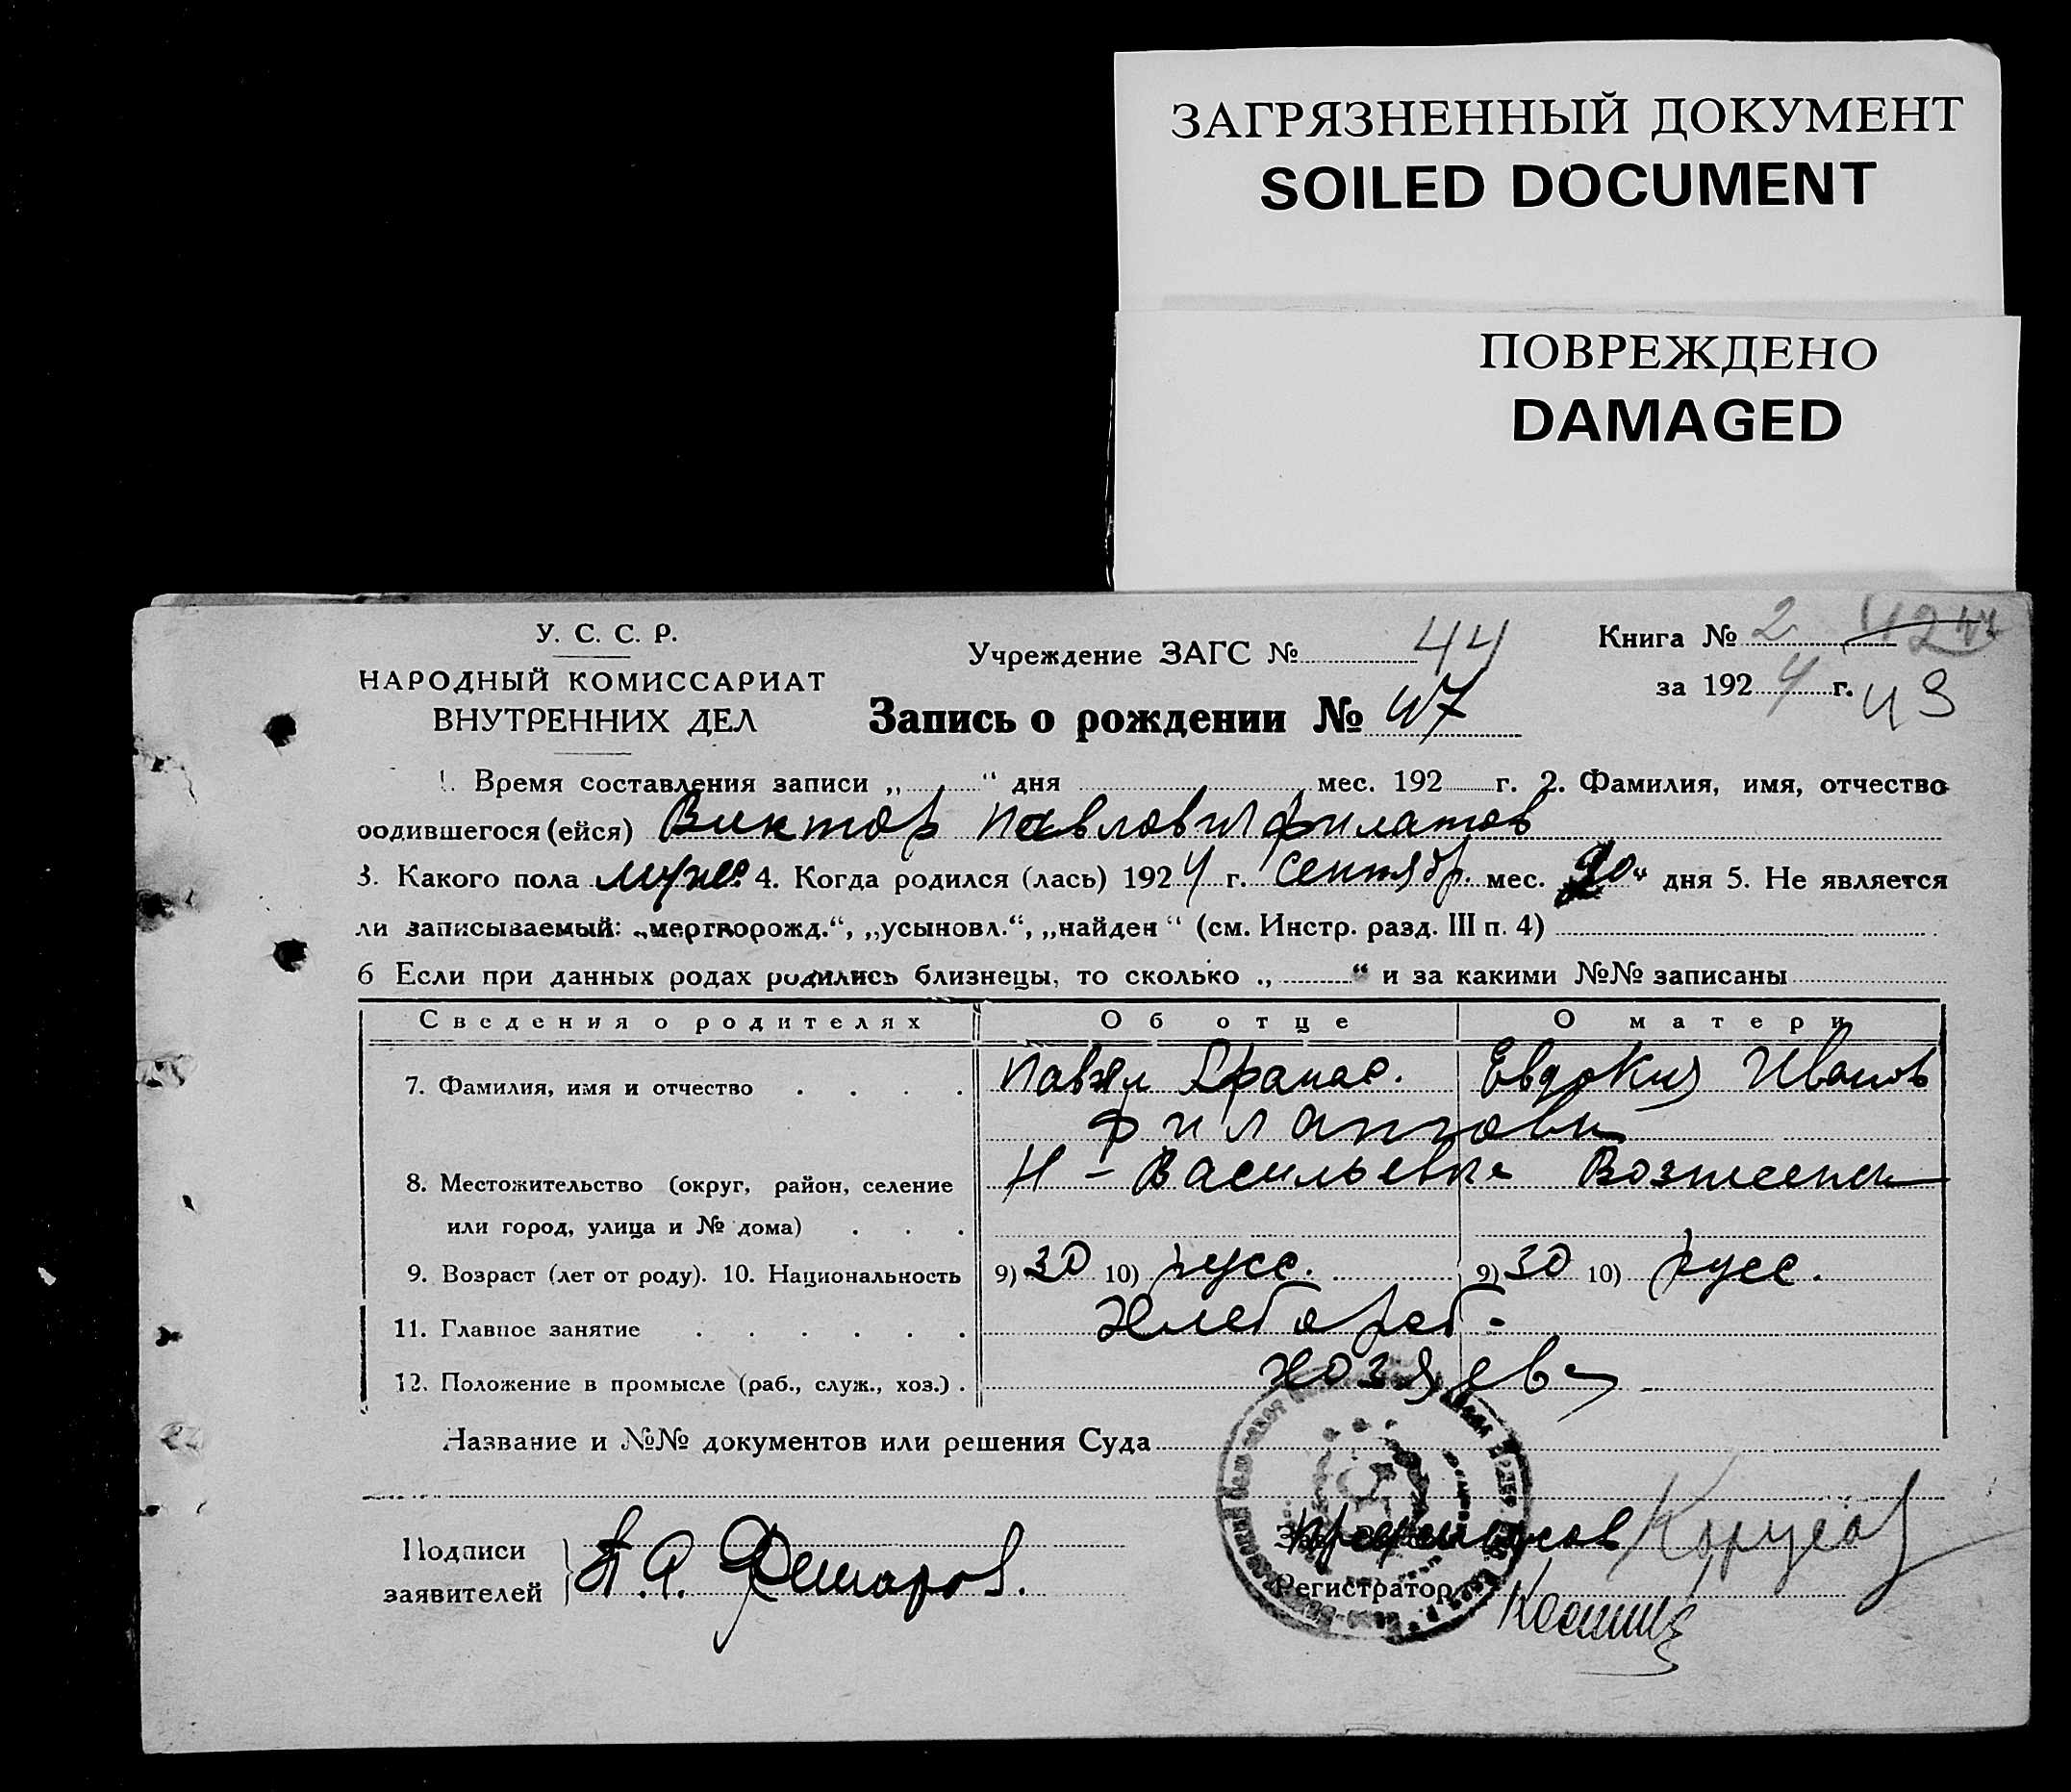 ЗАГРЯЗНЕННЫЙ ДОКУМЕНТ
SOILED DOCUMENT
ПОВРЕЖДЕНО
DAMAGED
У. С. С. Р.
НАРОДНЫЙ КОМИССАРИАТ
ВНУТРЕННИХ ДЕЛ
Учреждение ЗАГС № 44
Запись о рождении № 47
Книга № 2
за 1924 г. 43
1. Время составления записи „ “ дня мес. 192 г. 2. Фамилия, имя, отчество
родившегося (ейся) Виктор Павлович Филатов
3. Какого пола муже. 4. Когда родился (лась) 1924 г. сентябр. мес. 20 „ дня 5. Не является
ли записываемый: „мертворожд.“, „усыновл.“, „найден“ (см. Инстр. разд. III п. 4)
6 Если при данных родах родились близнецы, то сколько „ “ и за какими №№ записаны
Сведения о родителях Об отце О матери
7. Фамилия, имя и отчество Павел Афанас. Евдокия Иванов
Филатовы
8. Местожительство (округ, район, селение Н-Васильевка Вознесенск
или город, улица и № дома)
9. Возраст (лет от роду). 10. Национальность 9) 30 10) русс. 9) 30 10) русс.
11. Главное занятие Хлебороб.
12. Положение в промысле (раб., служ., хоз.) хозяева
Название и №№ документов или решения Суда
Подписи
заявителей П. А.
Регистратор